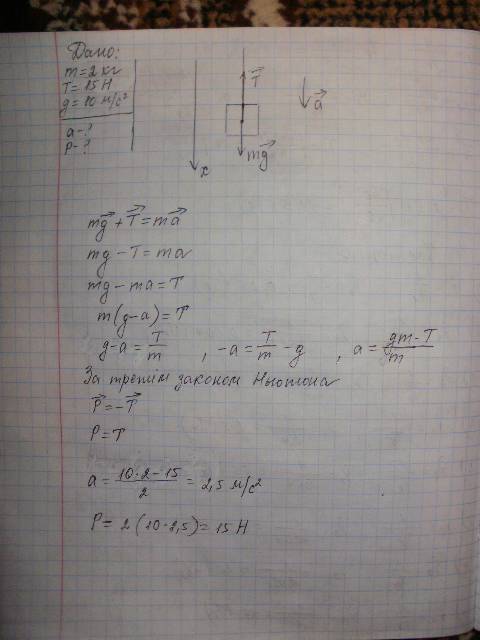 Дано:
m = 2 кг
T = 15 Н
g = 10 м/с²
a - ?
P - ?
T⃗
a⃗
mg⃗
x
mg⃗ + T⃗ = ma⃗
mg - T = ma
mg - ma = T
m(g-a) = T
g-a = T/m , -a = T/m - g , a = gm-T/m
За третім законом Ньютона
P⃗ = -T⃗
P = T
a = 10·2-15/2 = 2,5 м/с²
P = 2(10-2,5) = 15 Н